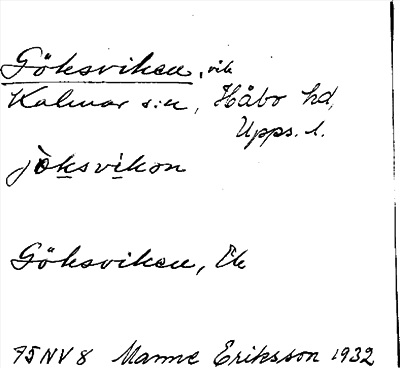 Göksviken, vik
Kalmar s:n, Håbo hd,
Upps. l.
jòksvikon
Göksviken, Ek
75 NV 8 Manne Eriksson 1932